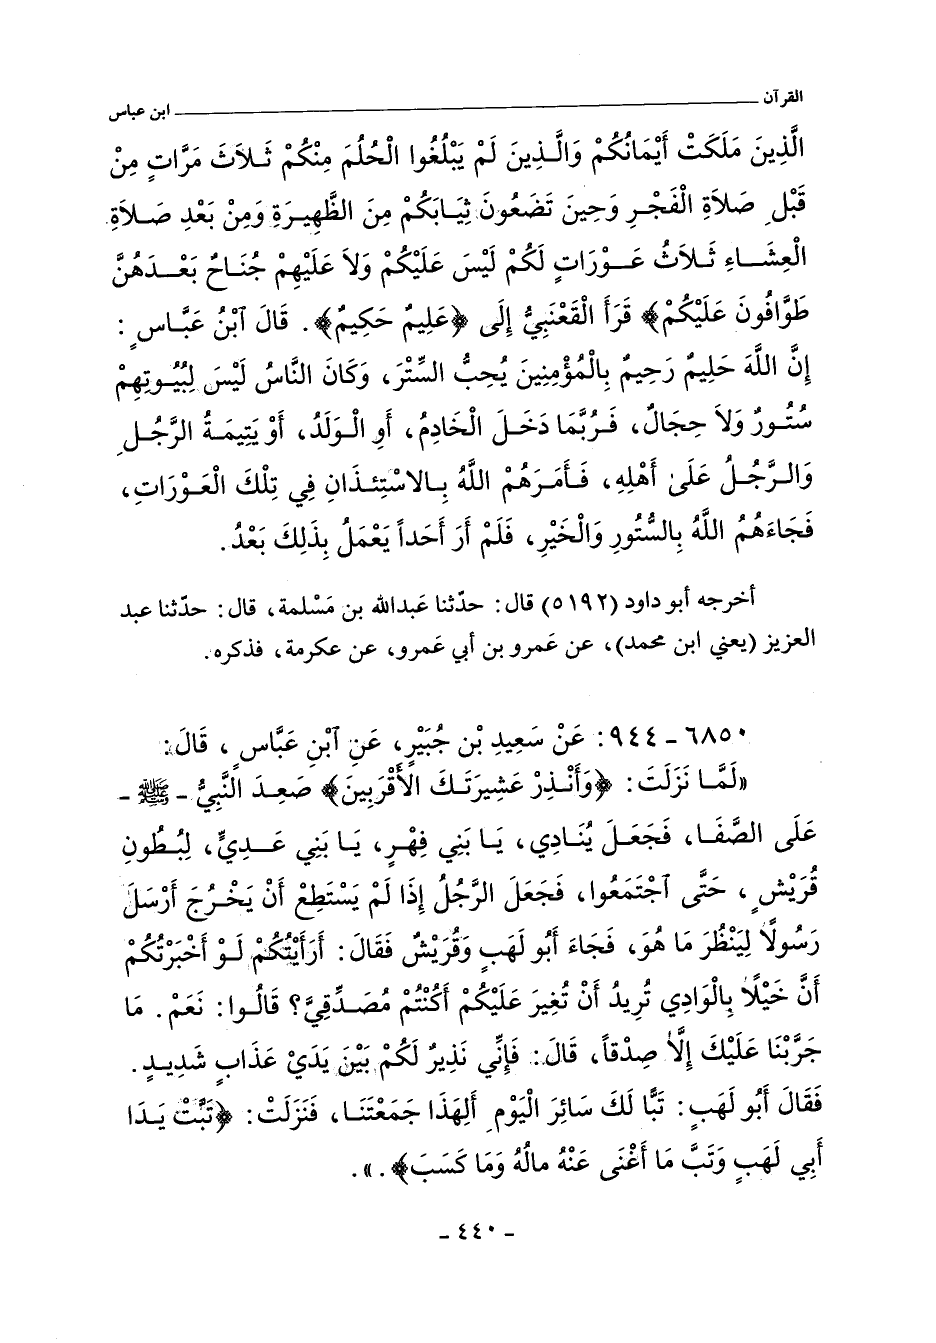 القرآن ــــــــــــــــــــ ابن عباس
الَّذِينَ مَلَكَتْ أَيْمَانُكُمْ وَالَّذِينَ لَمْ يَبْلُغُوا الْحُلُمَ مِنْكُمْ ثَلاَثَ مَرَّاتٍ مِنْ
قَبْلِ صَلاَةِ الْفَجْرِ وَحِينَ تَضَعُونَ ثِيَابَكُمْ مِنَ الظَّهِيرَةِ وَمِنْ بَعْدِ صَلاَةِ
الْعِشَاءِ ثَلاَثُ عَوْرَاتٍ لَكُمْ لَيْسَ عَلَيْكُمْ وَلاَ عَلَيْهِمْ جُنَاحٌ بَعْدَهُنَّ
طَوَّافُونَ عَلَيْكُمْ﴾ قَرَأَ الْقَعْنَبِيُّ إِلَى ﴿عَلِيمٌ حَكِيمٌ﴾. قَالَ آبْنُ عَبَّاسٍ :
إِنَّ اللَّهَ حَلِيمٌ رَحِيمٌ بِالْمُؤْمِنِينَ يُحِبُّ السِّتْرَ، وَكَانَ النَّاسُ لَيْسَ لِبُيُوتِهِمْ
سُتُورٌ وَلاَ حِجَالٌ، فَرُبَّمَا دَخَلَ الْخَادِمُ، أَوِ الْوَلَدُ، أَوْ يَتِيمَةُ الرَّجُلِ
وَالرَّجُلُ عَلَىٰ أَهْلِهِ، فَأَمَرَهُمْ اللَّهُ بِالاسْتِئْذَانِ فِي تِلْكَ الْعَوْرَاتِ،
فَجَاءَهُمُ اللَّهُ بِالسُّتُورِ وَالْخَيْرِ، فَلَمْ أَرَ أَحَداً يَعْمَلُ بِذَلِكَ بَعْدُ.
أخرجه أبو داود (٥١٩٢) قال: حدّثنا عَبدالله بن مَسْلمة، قال: حدّثنا عبد
العزيز (يعني ابن محمد)، عن عَمرو بن أبي عَمرو، عن عكرمة، فذكره.
٦٨٥٠ - ٩٤٤: عَنْ سَعِيدِ بْنِ جُبَيْرٍ، عَنِ آبْنِ عَبَّاسٍ ، قَالَ:
«لَمَّا نَزَلَتَ: ﴿وَأَنْذِرْ عَشِيرَتَكَ الأَقْرَبِينَ﴾ صَعِدَ النَّبِيُّ - ﷺ -
عَلَى الصَّفَا، فَجَعَلَ يُنَادِي، يَا بَنِي فِهْرٍ، يَا بَنِي عَدِيٍّ، لِبُطُونِ
قُرَيْشٍ ، حَتَّى آجْتَمَعُوا، فَجَعَلَ الرَّجُلُ إِذَا لَمْ يَسْتَطِعْ أَنْ يَخْرُجَ أَرْسَلَ
رَسُولًا لِيَنْظُرَ مَا هُوَ، فَجَاءَ أَبُو لَهَبٍ وَقُرَيْشٌ فَقَالَ: أَرَأَيْتُكُمْ لَوْ أَخْبَرْتُكُمْ
أَنَّ خَيْلًا بِالْوَادِي تُرِيدُ أَنْ تُغِيرَ عَلَيْكُمْ أَكُنْتُمْ مُصَدِّقِيَّ؟ قَالُوا: نَعَمْ. مَا
جَرَّبْنَا عَلَيْكَ إِلَّا صِدْقاً، قَالَ: فَإِنِّي نَذِيرٌ لَكُمْ بَيْنَ يَدَيْ عَذَابٍ شَدِيدٍ.
فَقَالَ أَبُو لَهَبٍ: تَبًّا لَكَ سَائِرَ الْيَوْمِ أَلِهَذَا جَمَعْتَنَا، فَنَزَلَتْ: ﴿تَبَّتْ يَدَا
أَبِي لَهَبٍ وَتَبَّ مَا أَغْنَى عَنْهُ مالُهُ وَمَا كَسَبَ﴾.».
- ٤٤٠ -